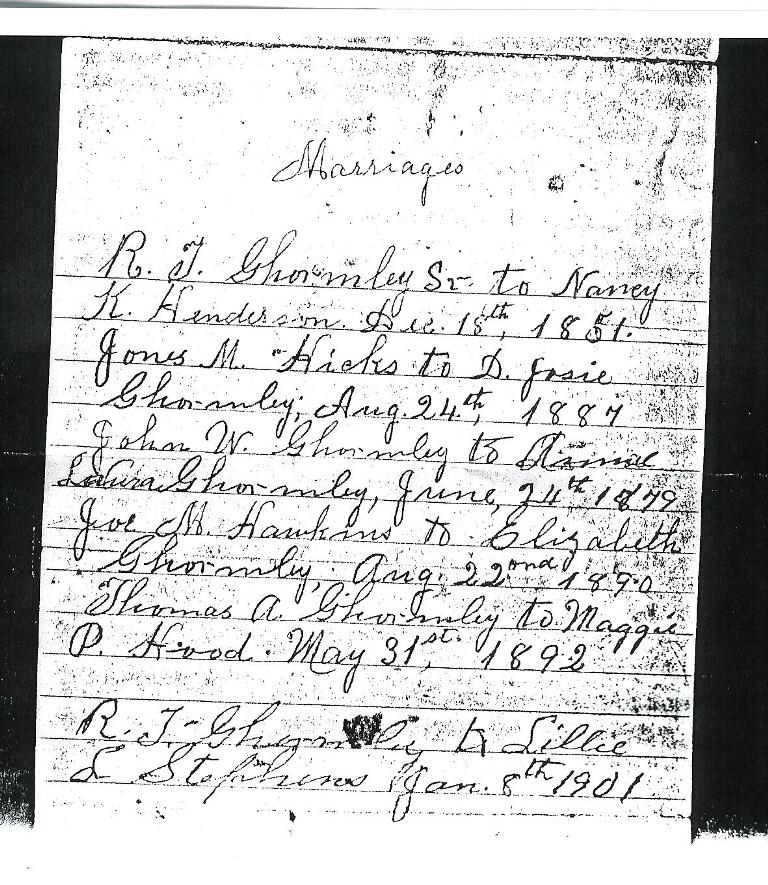 Marriages
R. T. Ghormley Sr. to Nancy
K. Henderson. Dec. 18th, 1851.
Jones M. Hicks to D. Josie
Ghormley, Aug. 24th, 1887
John W. Ghormley to
Laura Ghormley, June, 24th 1879
Joe M. Hawkins to Elizabeth
Ghormley, Aug. 22nd 1890
Thomas A. Ghormley to Maggie
P. Hood. May 31st, 1892
R. T. Ghormley to Lillie
L Stephens Jan. 8th 1901